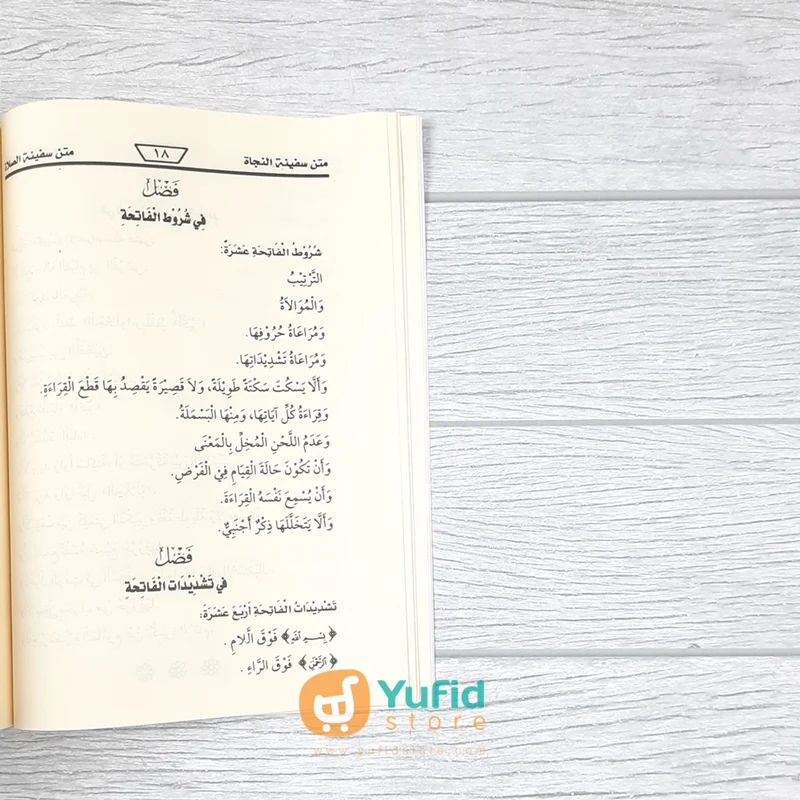 متن سفينة النجاة
١٨
متن سفينة الصلاة
فَصْلٌ
فِي شُرُوْطِ الْفَاتِحَةِ
شُرُوْطُ الْفَاتِحَةِ عَشَرَةٌ:
التَّرْتِيْبُ
وَالْمُوَالاَةُ
وَمُرَاعَاةُ حُرُوْفِهَا.
وَمُرَاعَاةُ تَشْدِيْدَاتِهَا.
وَأَلَّا يَسْكُتَ سَكْتَةً طَوِيْلَةً، وَلاَ قَصِيْرَةً يَقْصِدُ بِهَا قَطْعَ الْقِرَاءَةِ.
وَقِرَاءَةُ كُلِّ آيَاتِهَا، وَمِنْهَا الْبَسْمَلَةُ.
وَعَدَمُ اللَّحْنِ الْمُخِلِّ بِالْمَعْنَى
وَأَنْ تَكُوْنَ حَالَةَ الْقِيَامِ فِي الْفَرْضِ.
وَأَنْ يُسْمِعَ نَفْسَهُ الْقِرَاءَةَ.
وَأَلَّا يَتَخَلَّلَهَا ذِكْرٌ أَجْنَبِيٌّ.
فَصْلٌ
فِي تَشْدِيْدَاتِ الْفَاتِحَةِ
تَشْدِيْدَاتُ الْفَاتِحَةِ أَرْبَعَ عَشَرَةَ:
﴿بِسْمِ اللَّهِ﴾ فَوْقَ الَّلامِ.
﴿الرَّحْمَٰنِ﴾ فَوْقَ الرَّاءِ.
Yufid
store
www.yufidstore.com